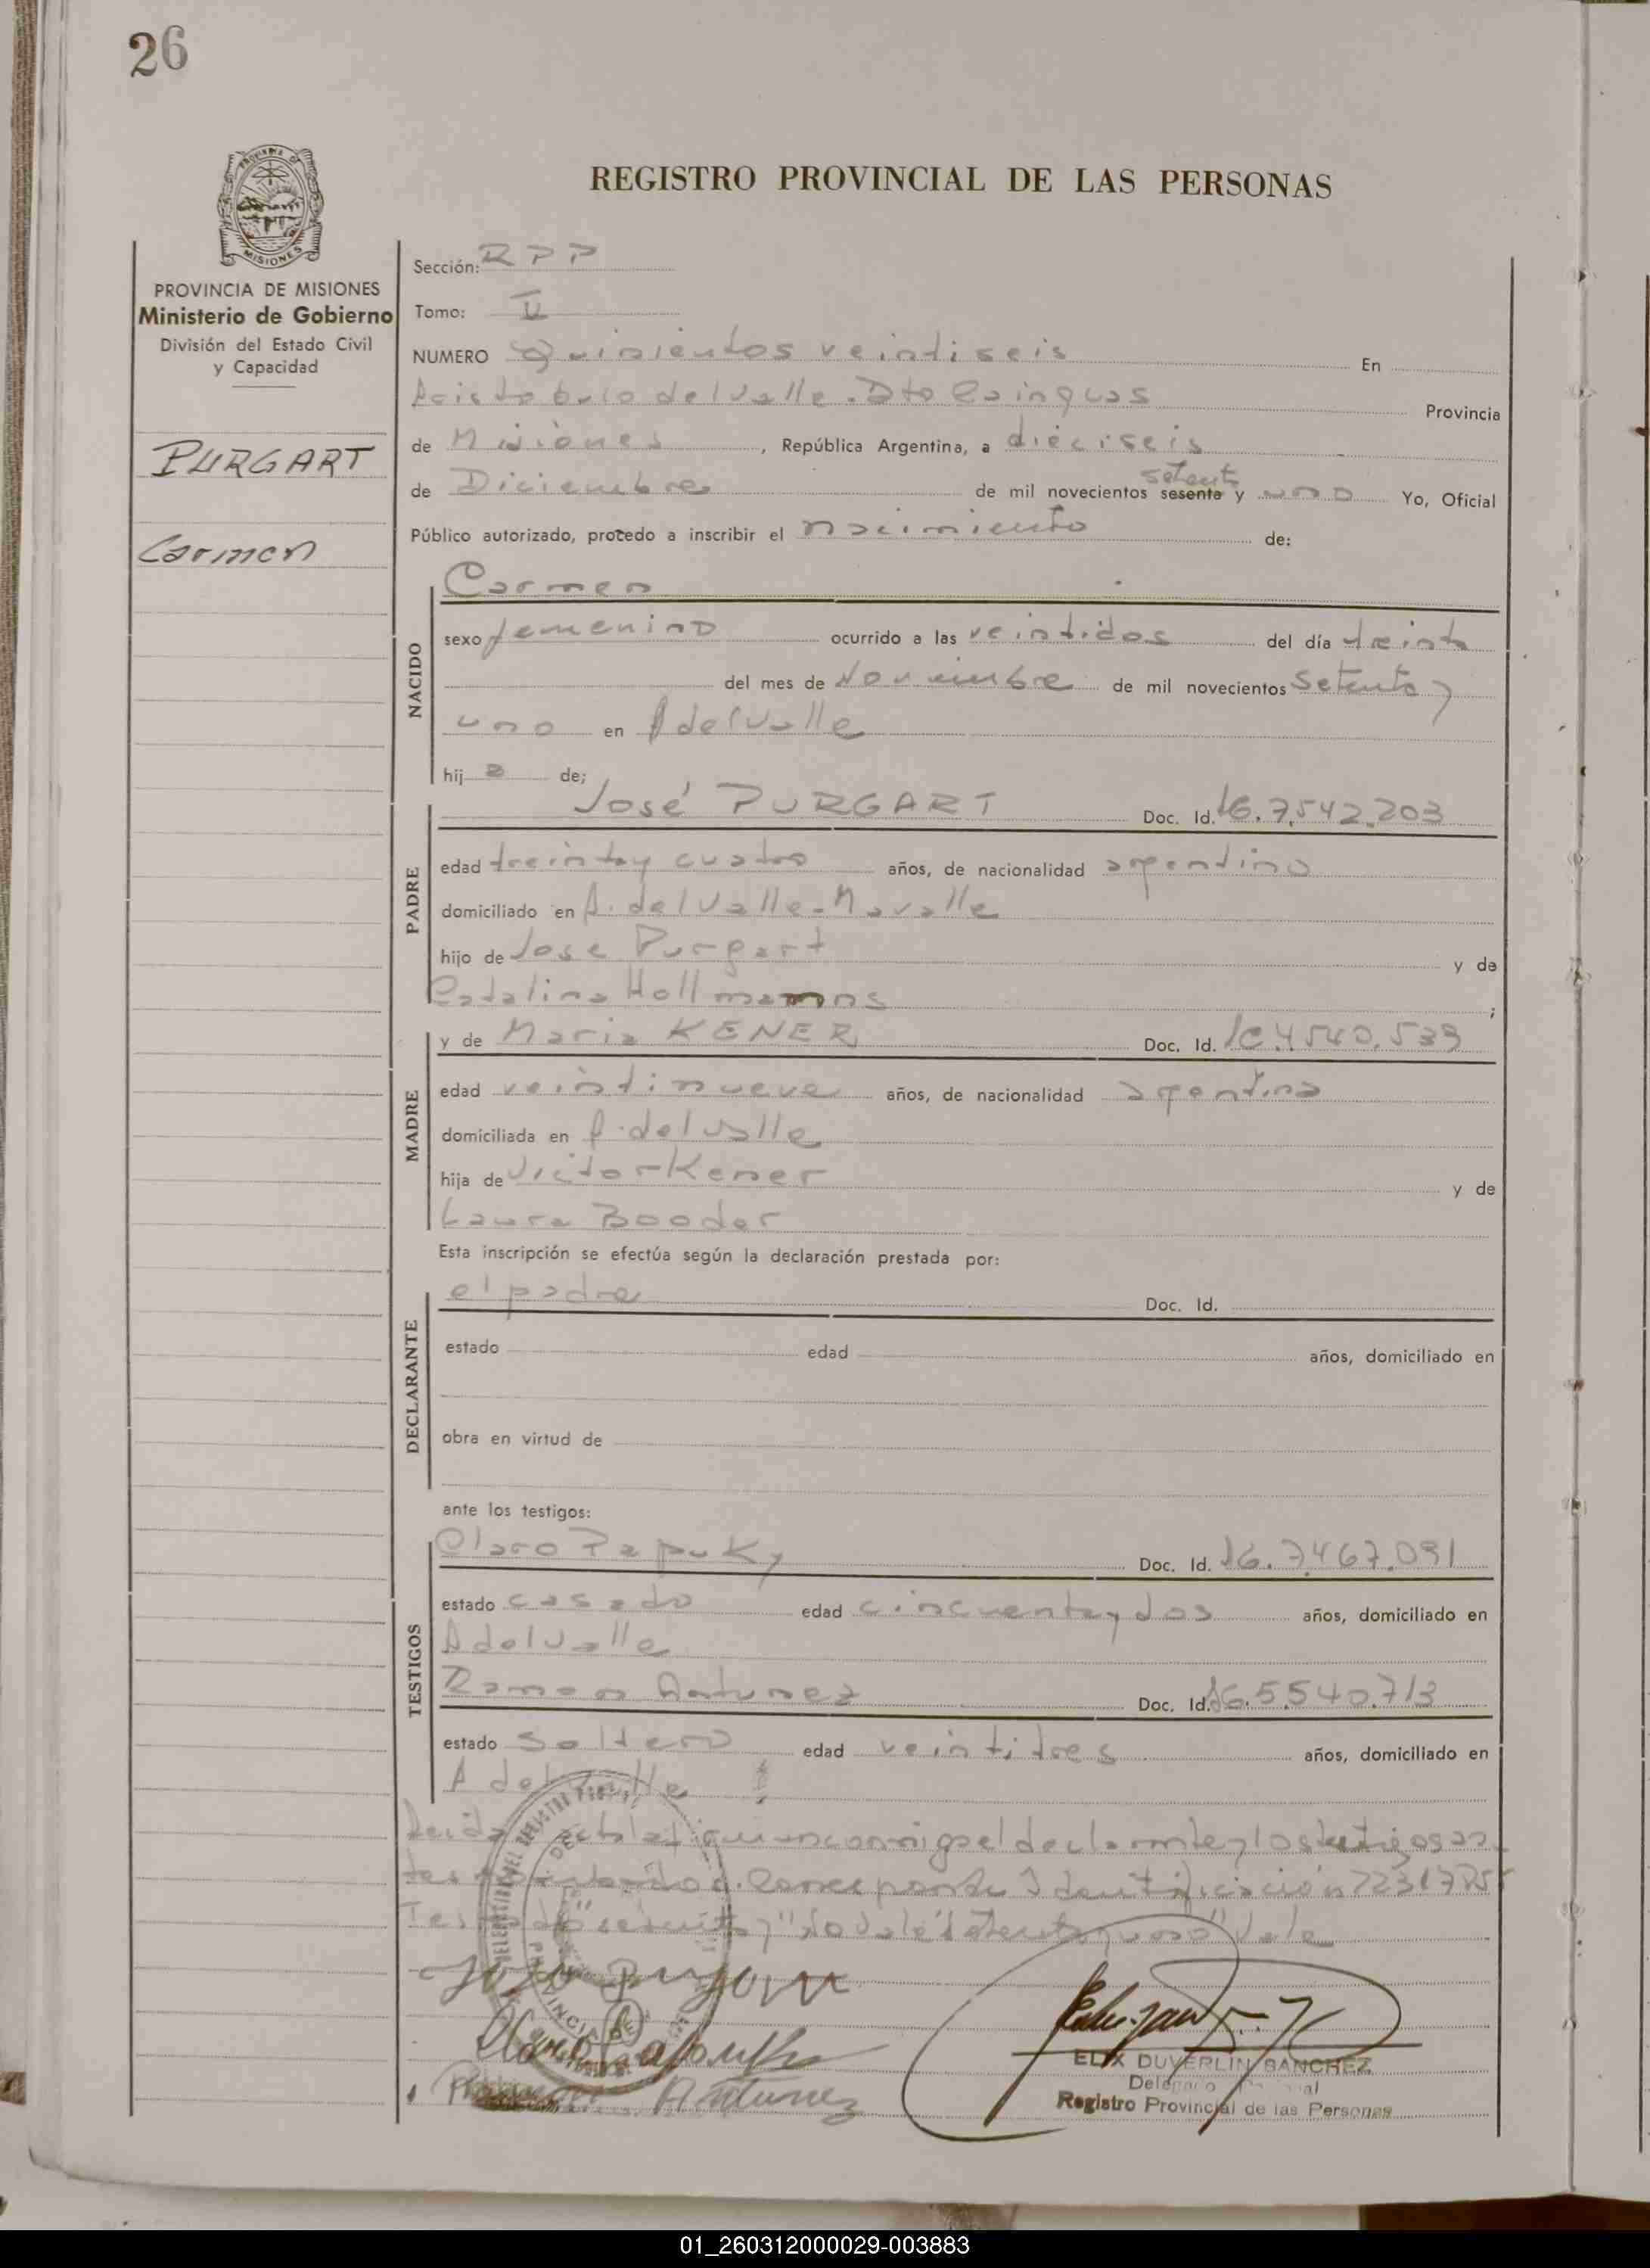 26
REGISTRO PROVINCIAL DE LAS PERSONAS
PROVINCIA DE
MISIONES
PROVINCIA DE MISIONES
Ministerio de Gobierno
División del Estado Civil
y Capacidad
PURGART
Carmen
Sección: RPP
Tomo: II
NUMERO Quinientos veintiseis En
Aristobulo del Valle. Dto Cainguas Provincia
de Misiones, República Argentina, a dieciseis
setenta
de Diciembre de mil novecientos sesenta y uno Yo, Oficial
Público autorizado, procedo a inscribir el nacimiento de:
Carmen
NACIDO
sexo femenino ocurrido a las veintidos del día treinta
del mes de Noviembre de mil novecientos setenta y
uno en A del Valle
hij a de;
PADRE
José PURGART Doc. Id. 16.7.542.203
edad treinta y cuatro años, de nacionalidad argentino
domiciliado en A. del Valle-Navalle
hijo de Jose Purgart y de
Catalina Hollmanns ;
MADRE
y de Maria KENER Doc. Id. 4540.539
edad veintinueve años, de nacionalidad argentina
domiciliada en A. del Valle
hija de Victor Kener y de
Laura Booder
Esta inscripción se efectúa según la declaración prestada por:
DECLARANTE
el padre Doc. Id.
estado edad años, domiciliado en
obra en virtud de
ante los testigos:
TESTIGOS
Claro Papuky Doc. Id. 16.7.467.091
estado casado edad cincuenta y dos años, domiciliado en
A del Valle
Ramon Antunez Doc. Id. 16.5.540.713
estado soltero edad veintitres años, domiciliado en
A del Valle
Leida acta la conmigo el declarante y los testigos an
tes Corresponde Identificación
"setenta y uno" Vale
Antunez
ELIX DUVERLIN SANCHEZ
Registro Provincial de las Personas
01_260312000029-003883